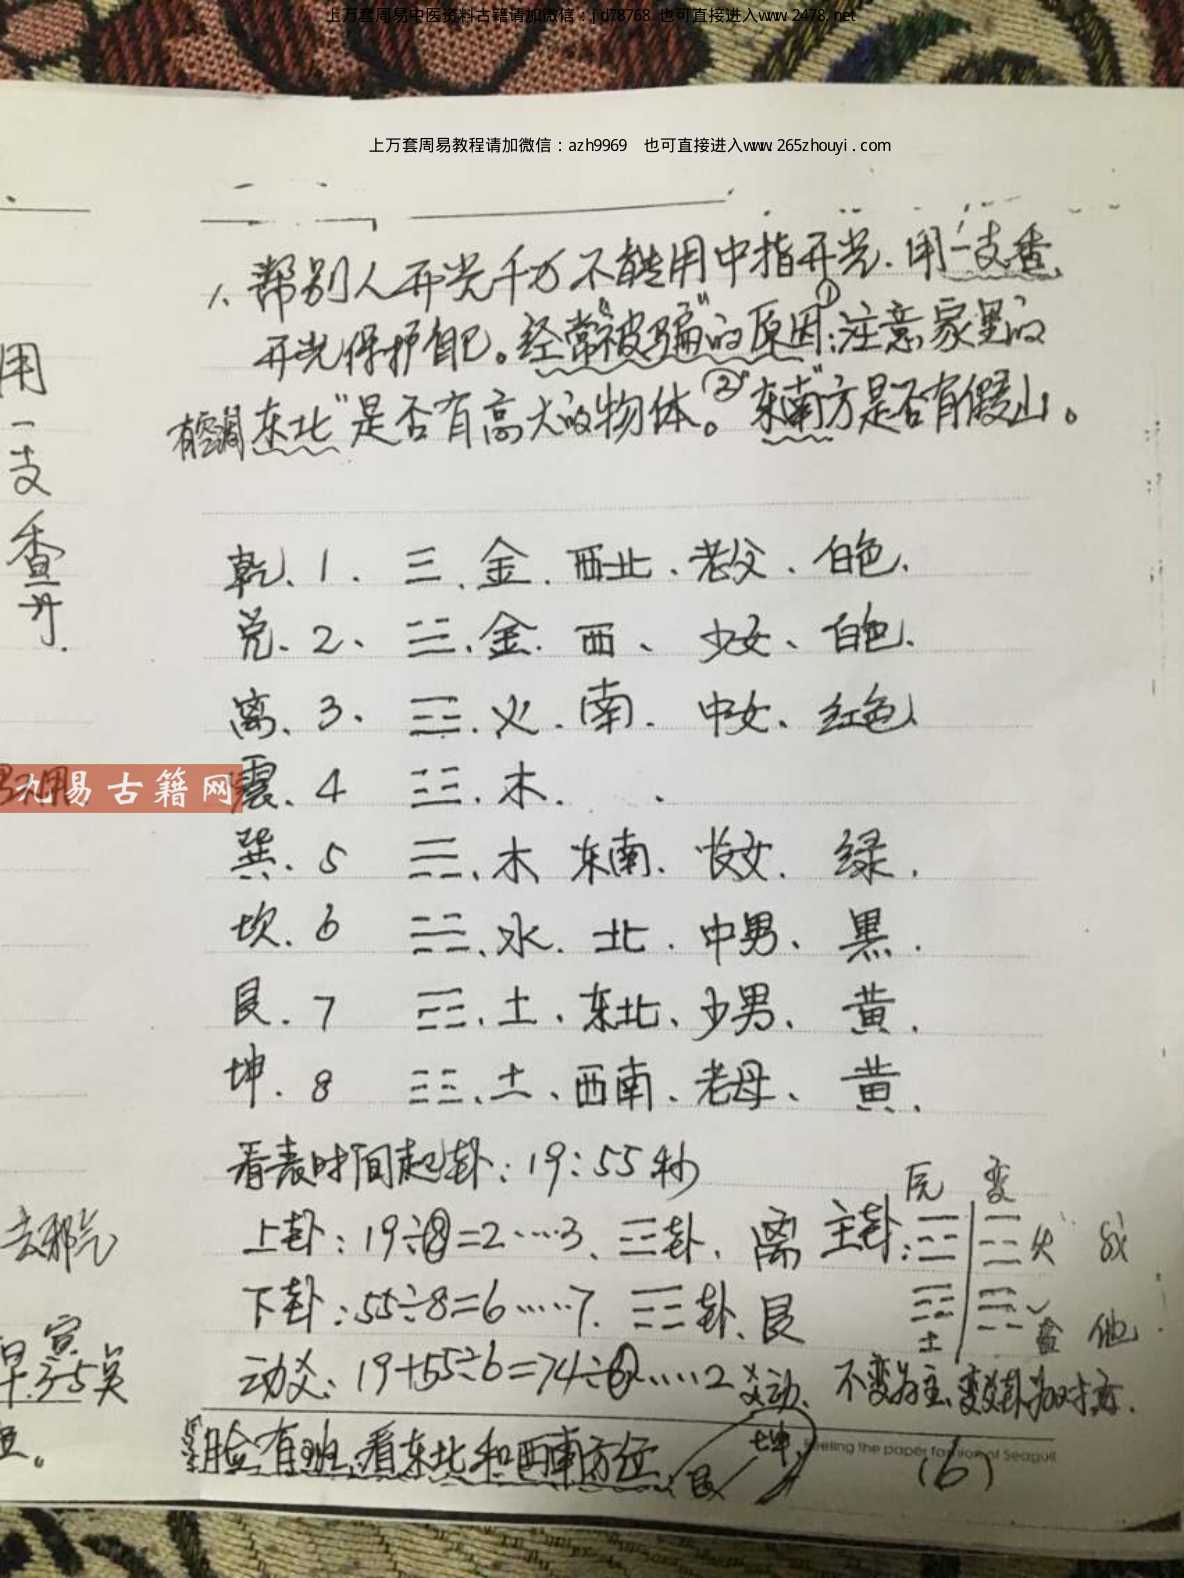 上万套周易中医资料古籍请加微信：jd78768 也可直接进入www.2478.net
上万套周易教程请加微信：azh9969 也可直接进入www.265zhouyi.com
1、帮别人开光千万不能用中指开光.用一支香
开光保护自己。经常"被骗"的原因:①注意家里的
东北"是否有高大的物体。②"东南"方是否有假山。
乾、1、☰、金、西北、老父、白色、
兑、2、☱、金、西、少女、白色、
离、3、☲、火、南、中女、红色、
震、4 ☳、木、
巽、5 ☴、木 东南、长女、绿、
坎、6 ☵、水、北、中男、黑、
艮、7 ☶、土、东北、少男、黄、
坤、8 ☷、土、西南、老母、黄、
看表时间起卦：19:55秒
上卦：19÷8=2……3、☲卦、离
下卦：55÷8=6……7、☶卦、艮
动爻：19+55÷6=74÷6……2爻动、不变为主、变卦为对方.
主卦:
原 变
火 我
土 他
脸有斑、看东北和西南方位
艮 坤
Feeling the paper fashion of Seagull
(6)
用一支香开.
九易古籍网
去邪气